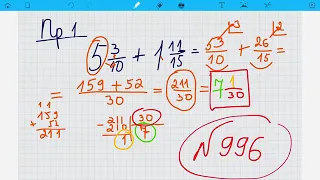 Пр 1
5 3/10 + 1 11/15 = 53/10 + 26/15 =
= (159 + 52)/30 = 211/30 = 7 1/30
159 + 52 = 211
211 | 30
7
1
№ 996